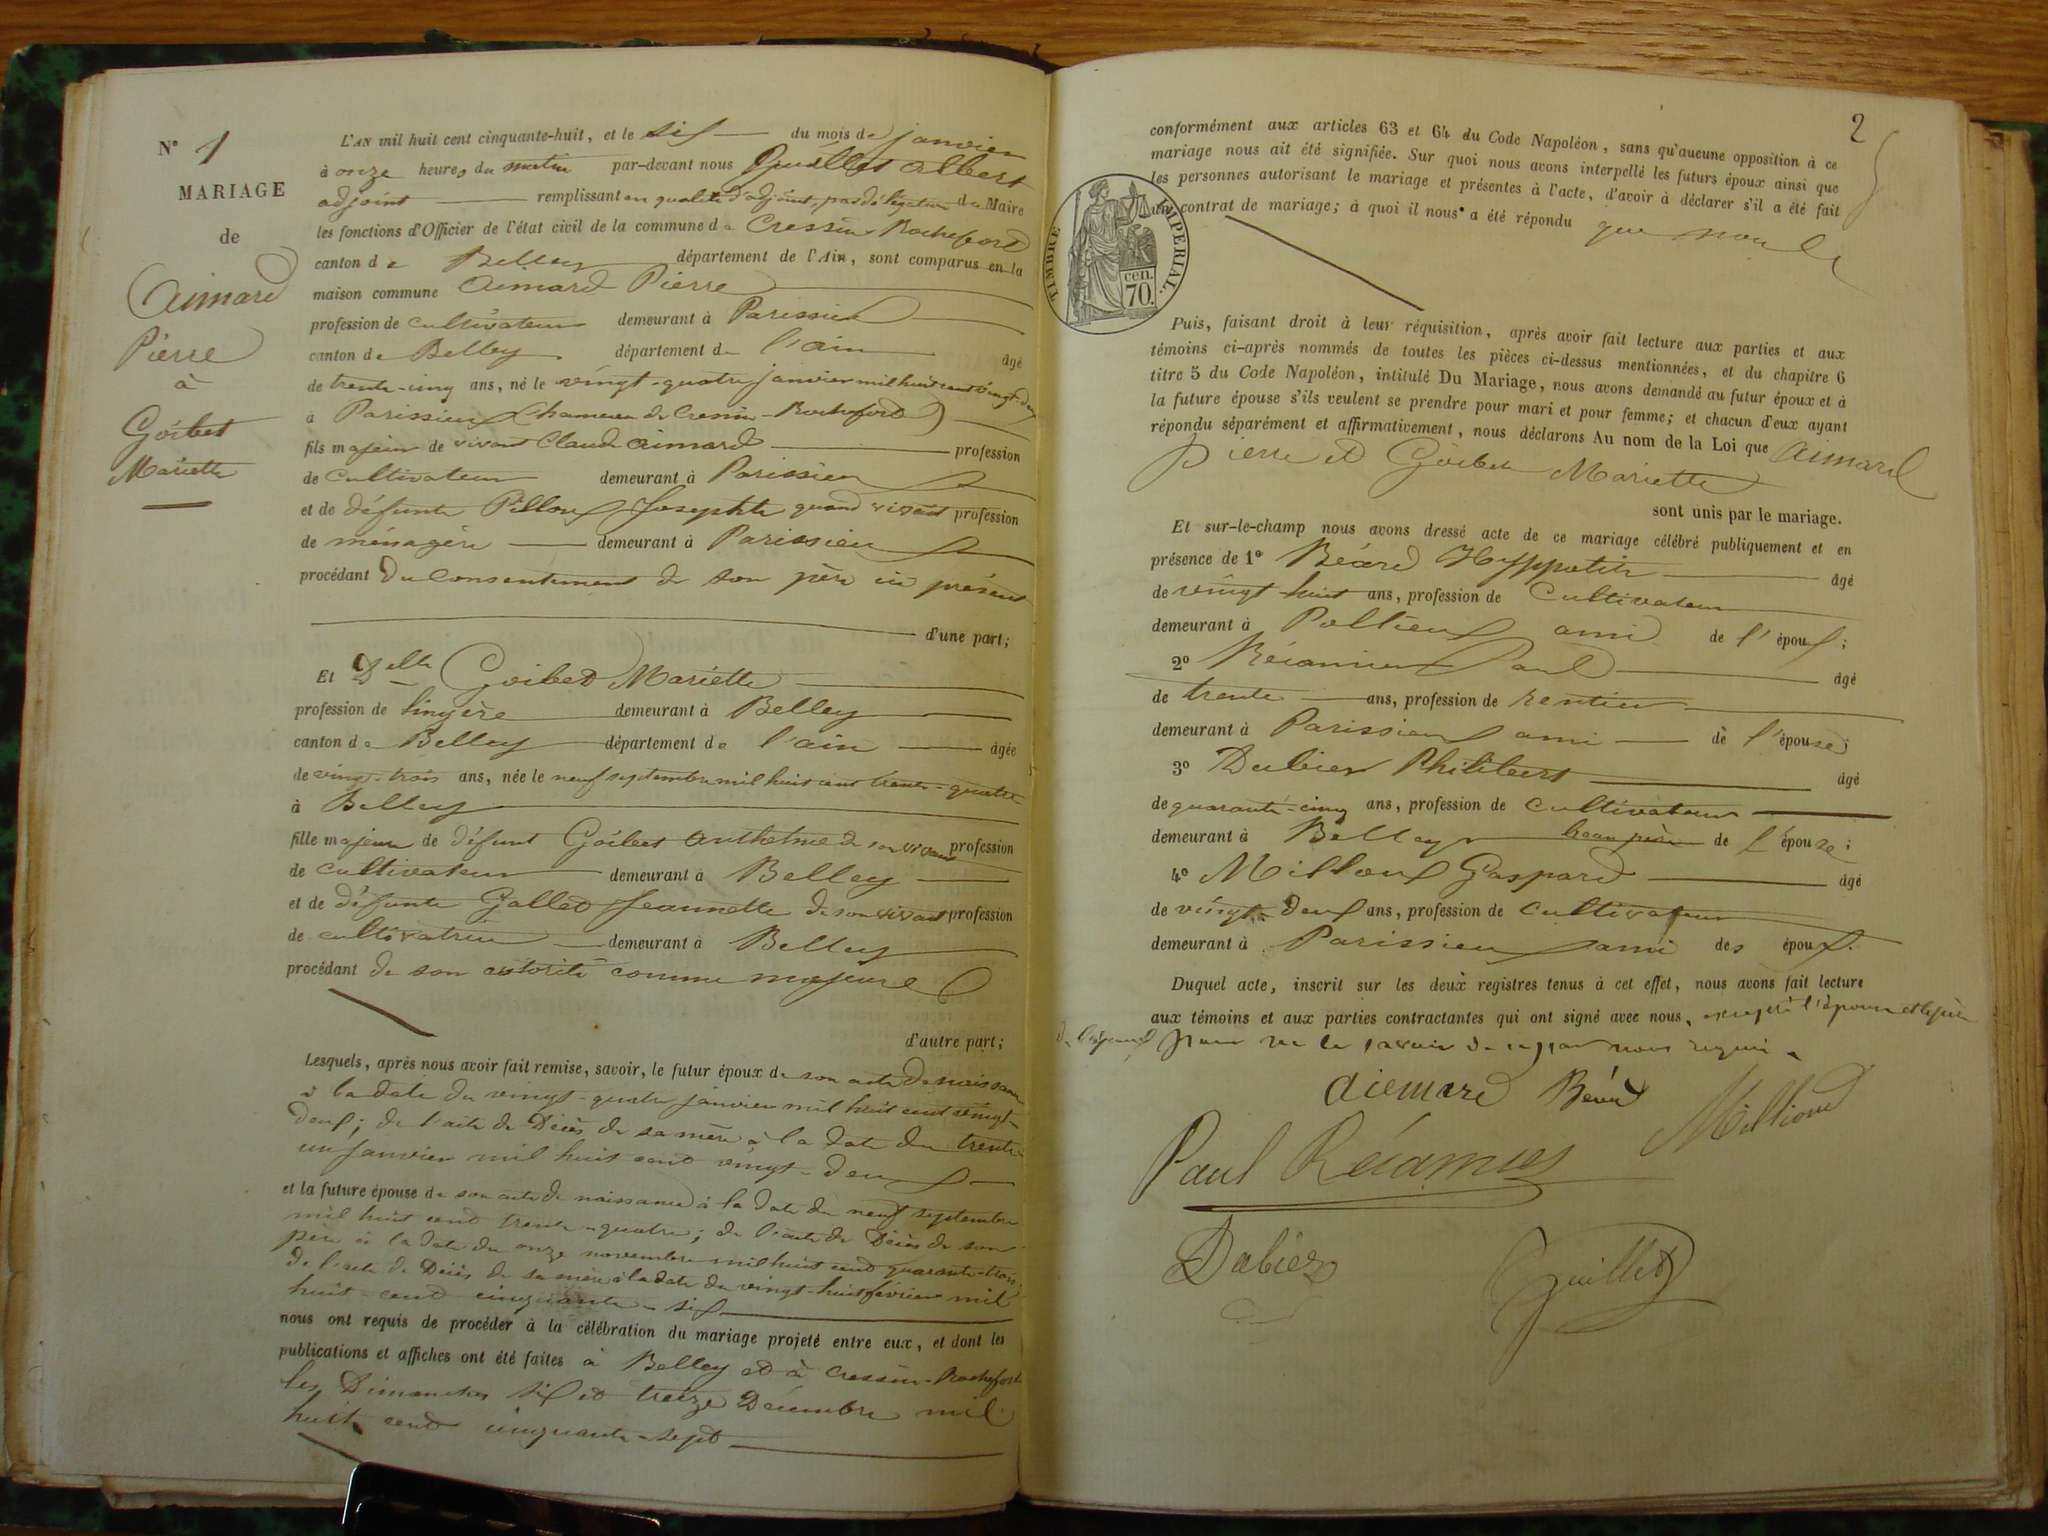 N° 1
MARIAGE
de
Aimard
Pierre
à
Goibet
Mariette
L'AN mil huit cent cinquante-huit, et le six du mois de janvier
à onze heures du matin par-devant nous Guillet Albert
adjoint remplissant en qualité d'adjoint, par délégation du Maire
les fonctions d'Officier de l'état civil de la commune de Cressin-Rochefort
canton de Belley département de l'Ain, sont comparus en la
maison commune Aimard Pierre
profession de cultivateur demeurant à Parissieu
canton de Belley département de l'ain âgé
de trente-cinq ans, né le vingt-quatre janvier mil huit cent vingt-deux
à Parissieu (hameau de Cressin-Rochefort)
fils majeur de vivant Claude Aimard profession
de cultivateur demeurant à Parissieu
et de défunte Pilloux Josephte quand vivait profession
de ménagère demeurant à Parissieu
procédant du consentement de son père ici présent
d'une part;
Et Delle Goibet Mariette
profession de lingère demeurant à Belley
canton de Belley département de l'ain âgée
de vingt-trois ans, née le neuf septembre mil huit cent trente-quatre
à Belley
fille majeure de défunt Goibet Anthelme de son vivant profession
de cultivateur demeurant à Belley
et de défunte Gallet Jeannette de son vivant profession
de cultivatrice demeurant à Belley
procédant de son autorité comme majeure
d'autre part;
Lesquels, après nous avoir fait remise, savoir, le futur époux de son acte de naissance
à la date du vingt-quatre janvier mil huit cent vingt-
deux; de l'acte de Décès de sa mère à la date du trente
un janvier mil huit cent vingt-deux
et la future épouse de son acte de naissance à la date du neuf septembre
mil huit cent trente-quatre; de l'acte de Décès de son
père à la date du onze novembre mil huit cent quarante-trois;
de l'acte de Décès de sa mère à la date du vingt-huit février mil
huit cent cinquante-six
nous ont requis de procéder à la célébration du mariage projeté entre eux, et dont les
publications et affiches ont été faites à Belley et à Cressin-Rochefort
les Dimanches six et treize Décembre mil
huit cent cinquante-sept
2
conformément aux articles 63 et 64 du Code Napoléon, sans qu'aucune opposition à ce
mariage nous ait été signifiée. Sur quoi nous avons interpellé les futurs époux ainsi que
les personnes autorisant le mariage et présentes à l'acte, d'avoir à déclarer s'il a été fait
un contrat de mariage; à quoi il nous a été répondu que non
TIMBRE IMPERIAL.
70 cen.
Puis, faisant droit à leur réquisition, après avoir fait lecture aux parties et aux
témoins ci-après nommés de toutes les pièces ci-dessus mentionnées, et du chapitre 6
titre 5 du Code Napoléon, intitulé Du Mariage, nous avons demandé au futur époux et à
la future épouse s'ils veulent se prendre pour mari et pour femme; et chacun d'eux ayant
répondu séparément et affirmativement, nous déclarons Au nom de la Loi que Aimard
Pierre et Goibet Mariette
sont unis par le mariage.
Et sur-le-champ nous avons dressé acte de ce mariage célébré publiquement et en
présence de 1° Béard Hyppolite âgé
de vingt-huit ans, profession de Cultivateur
demeurant à Pollieux ami de l'époux;
2° Récamier Paul âgé
de trente ans, profession de rentier
demeurant à Parissieu ami de l'épouse;
3° Dubiez Philibert âgé
de quarante-cinq ans, profession de cultivateur
demeurant à Belley beau père de l'épouse;
4° Millioux Gaspard âgé
de vingt-deux ans, profession de cultivateur
demeurant à Parissieu ami des époux.
Duquel acte, inscrit sur les deux registres tenus à cet effet, nous avons fait lecture
aux témoins et aux parties contractantes qui ont signé avec nous, excepté l'épouse et le père
de l'époux pour ne le savoir de ce par nous requis.
Aiemard Béard Millioud
Paul Récamier
Dabiez Guillet